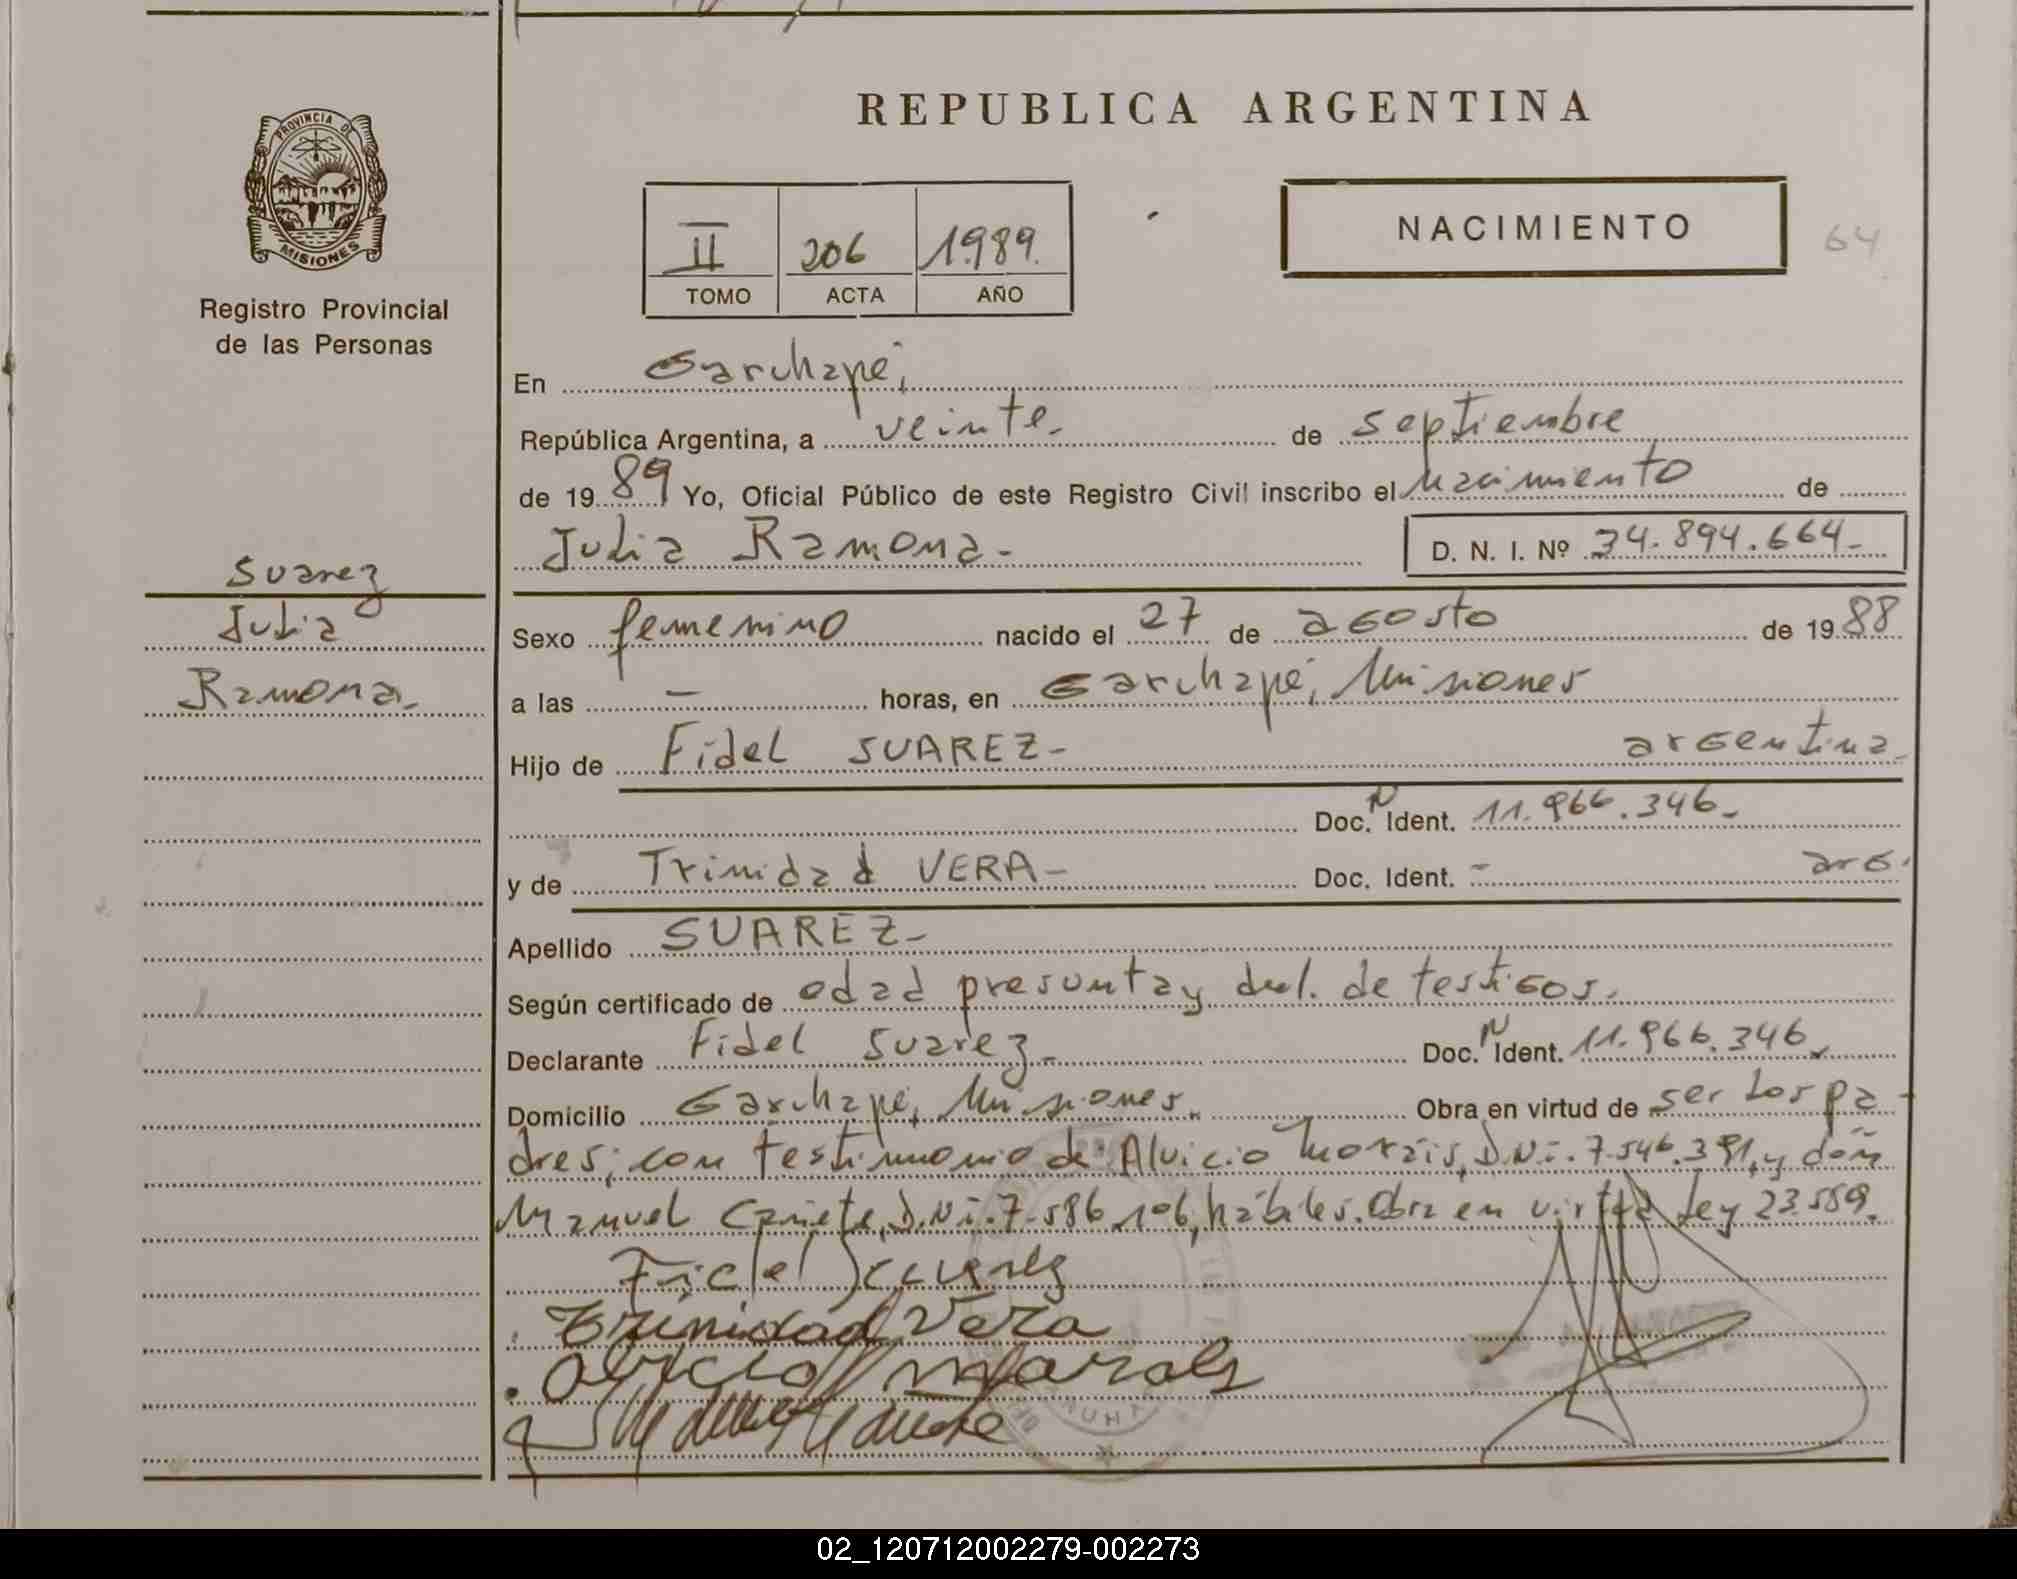 REPUBLICA ARGENTINA
PROVINCIA DE
MISIONES
Registro Provincial
de las Personas
II 206 1989.
TOMO ACTA AÑO
NACIMIENTO
64
En Garuhapé,
República Argentina, a veinte- de septiembre
de 1989 Yo, Oficial Público de este Registro Civil inscribo el nacimiento de
Julia Ramona- D. N. I. Nº 34.894.664-
Suarez
Julia
Ramona.
Sexo femenino nacido el 27 de agosto de 1988
a las — horas, en Garuhapé, Misiones
Hijo de Fidel SUAREZ- argentina-
Doc. N Ident. 11.966.346-
y de Trinidad VERA- Doc. Ident. - arg.
Apellido SUAREZ-
Según certificado de edad presunta y decl. de testigos.
Declarante Fidel Suarez- Doc. N Ident. 11.966.346
Domicilio Garuhapé, Misiones. Obra en virtud de ser los pa-
dres; con testimonio de Alvicio Morais, D.N.i. 7.546.391, y don
Manuel Cañete, D.N.i. 7.586.106, hábiles. Obra en virtud Ley 23.559.
Fidel Suarez
Trinidad Vera
02_120712002279-002273